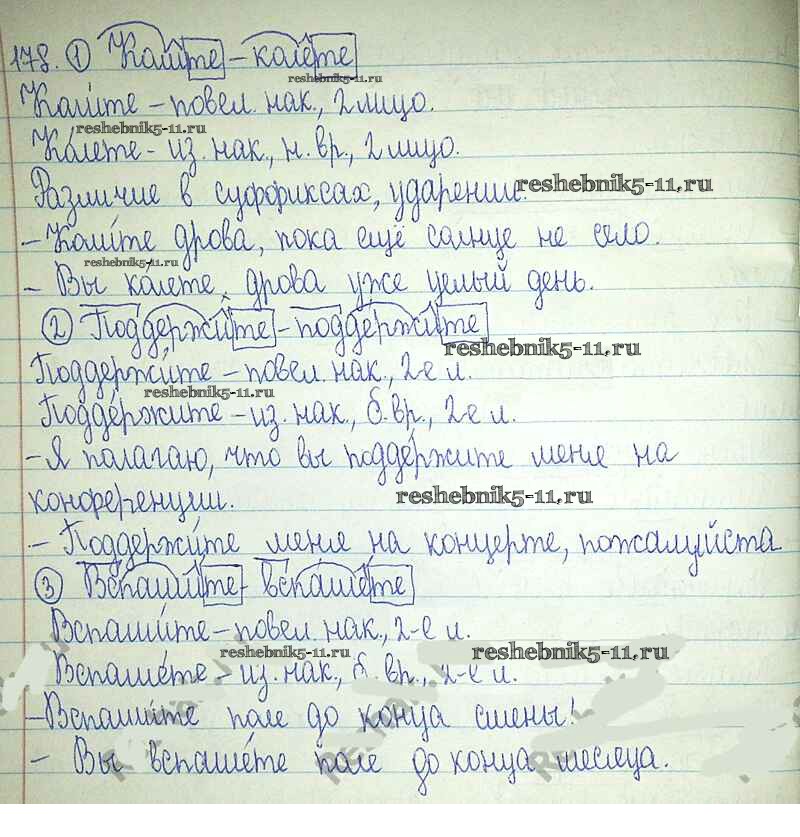 178. 1 Коли́те – ко́лете
reshebnik5-11.ru
Коли́те – повел. нак., 2 лицо.
reshebnik5-11.ru
Ко́лете – из. нак., н. вр., 2 лицо.
Различие в суффиксах, ударение.
reshebnik5-11.ru
– Коли́те дрова, пока ещё солнце не село.
reshebnik5-11.ru
– Вы колете дрова уже целый день.
2 Поддержи́те – подде́ржите
reshebnik5-11.ru
Поддержи́те – повел. нак., 2-е л.
reshebnik5-11.ru
Подде́ржите – из. нак., б. вр., 2-е л.
– Я полагаю, что вы подде́ржите меня на
конференции.
reshebnik5-11.ru
– Поддержи́те меня на концерте, пожалуйста
3 Вспаши́те – вспа́шете
Вспаши́те – повел. нак., 2-е л.
reshebnik5-11.ru
reshebnik5-11.ru
Вспаше́те – из. нак., б. вр., 2-е л.
– Вспашите поле до конца смены!
– Вы вспаше́те поле до конца месяца.